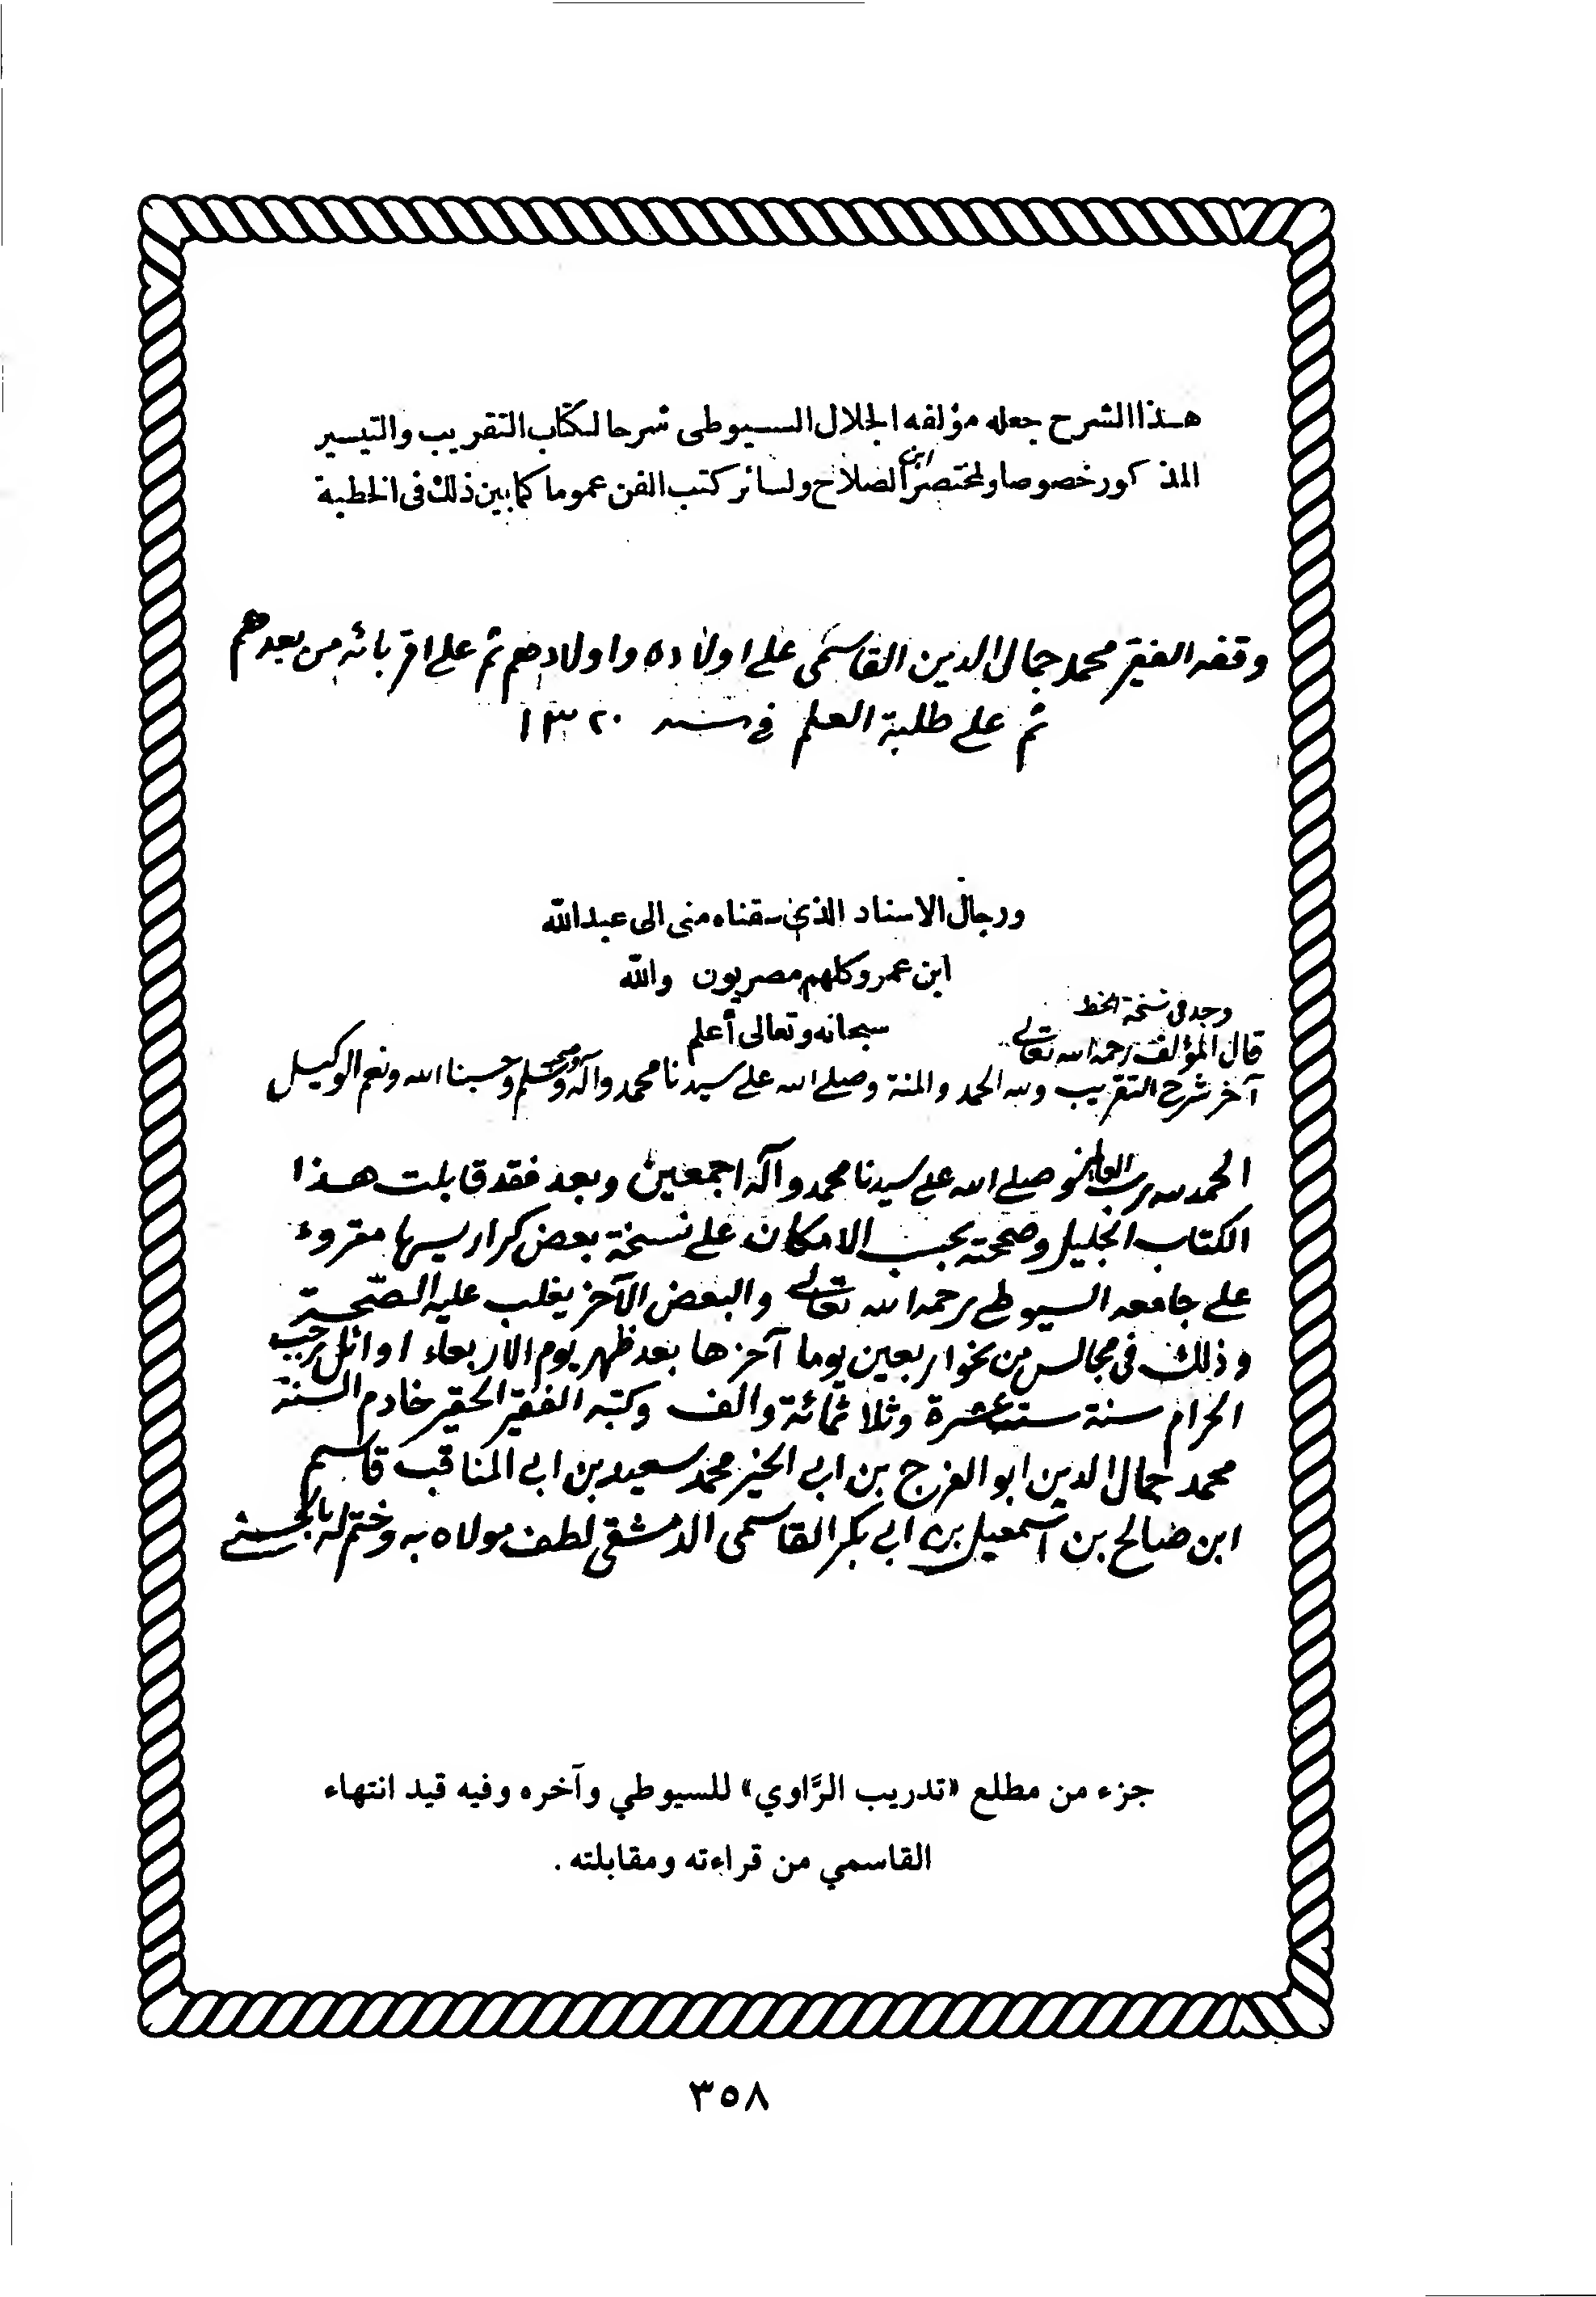 هذا الشرح جعله مؤلفه الجلال السيوطى شرحا لكتاب التقريب والتيسير
المذكور خصوصا ولمختصر ابن الصلاح ولسائر كتب الفن عموما كما بين ذلك فى الخطبة
وقفه الفقير محمد جمال الدين القاسمى على اولاده واولادهم ثم على اقربائه من بعدهم
ثم على طلبة العلم في سنه ١٣٢٠
ورجال الاسناد الذى سقناه منى الى عبد الله
ابن عمرو كلهم مصريون والله
وجد فى نسخة الخط
سبحانه وتعالى أعلم
قال المؤلف رحمه الله تعالى
آخر شرح التقريب ولله الحمد والمنة وصلى الله على سيدنا محمد وآله وصحبه وسلم وحسبنا الله ونعم الوكيل
الحمد لله رب العالمين وصلى الله على سيدنا محمد وآله اجمعين وبعد فقد قابلت هذا
الكتاب الجليل وصححته بحسب الامكان على نسخة بعض كراريسها مقروء
على جامعه السيوطي رحمه الله تعالى والبعض الآخر يغلب عليه الصحة
وذلك فى مجالس من نحو اربعين يوما آخرها بعد ظهر يوم الاربعاء اوائل رجب
الحرام سنة ست عشرة وثلاثمائة والف وكتبه الفقير الحقير خادم السنة
محمد جمال الدين ابو الفرج بن ابي الخير محمد سعيد بن ابي المناقب قاسم
ابن صالح بن اسمعيل بن ابي بكر القاسمى الدمشقى لطف مولاه به وختم له بالحسنى
جزء من مطلع «تدريب الرَّاوي» للسيوطي وآخره وفيه قيد انتهاء
القاسمي من قراءته ومقابلته .
٣٥٨